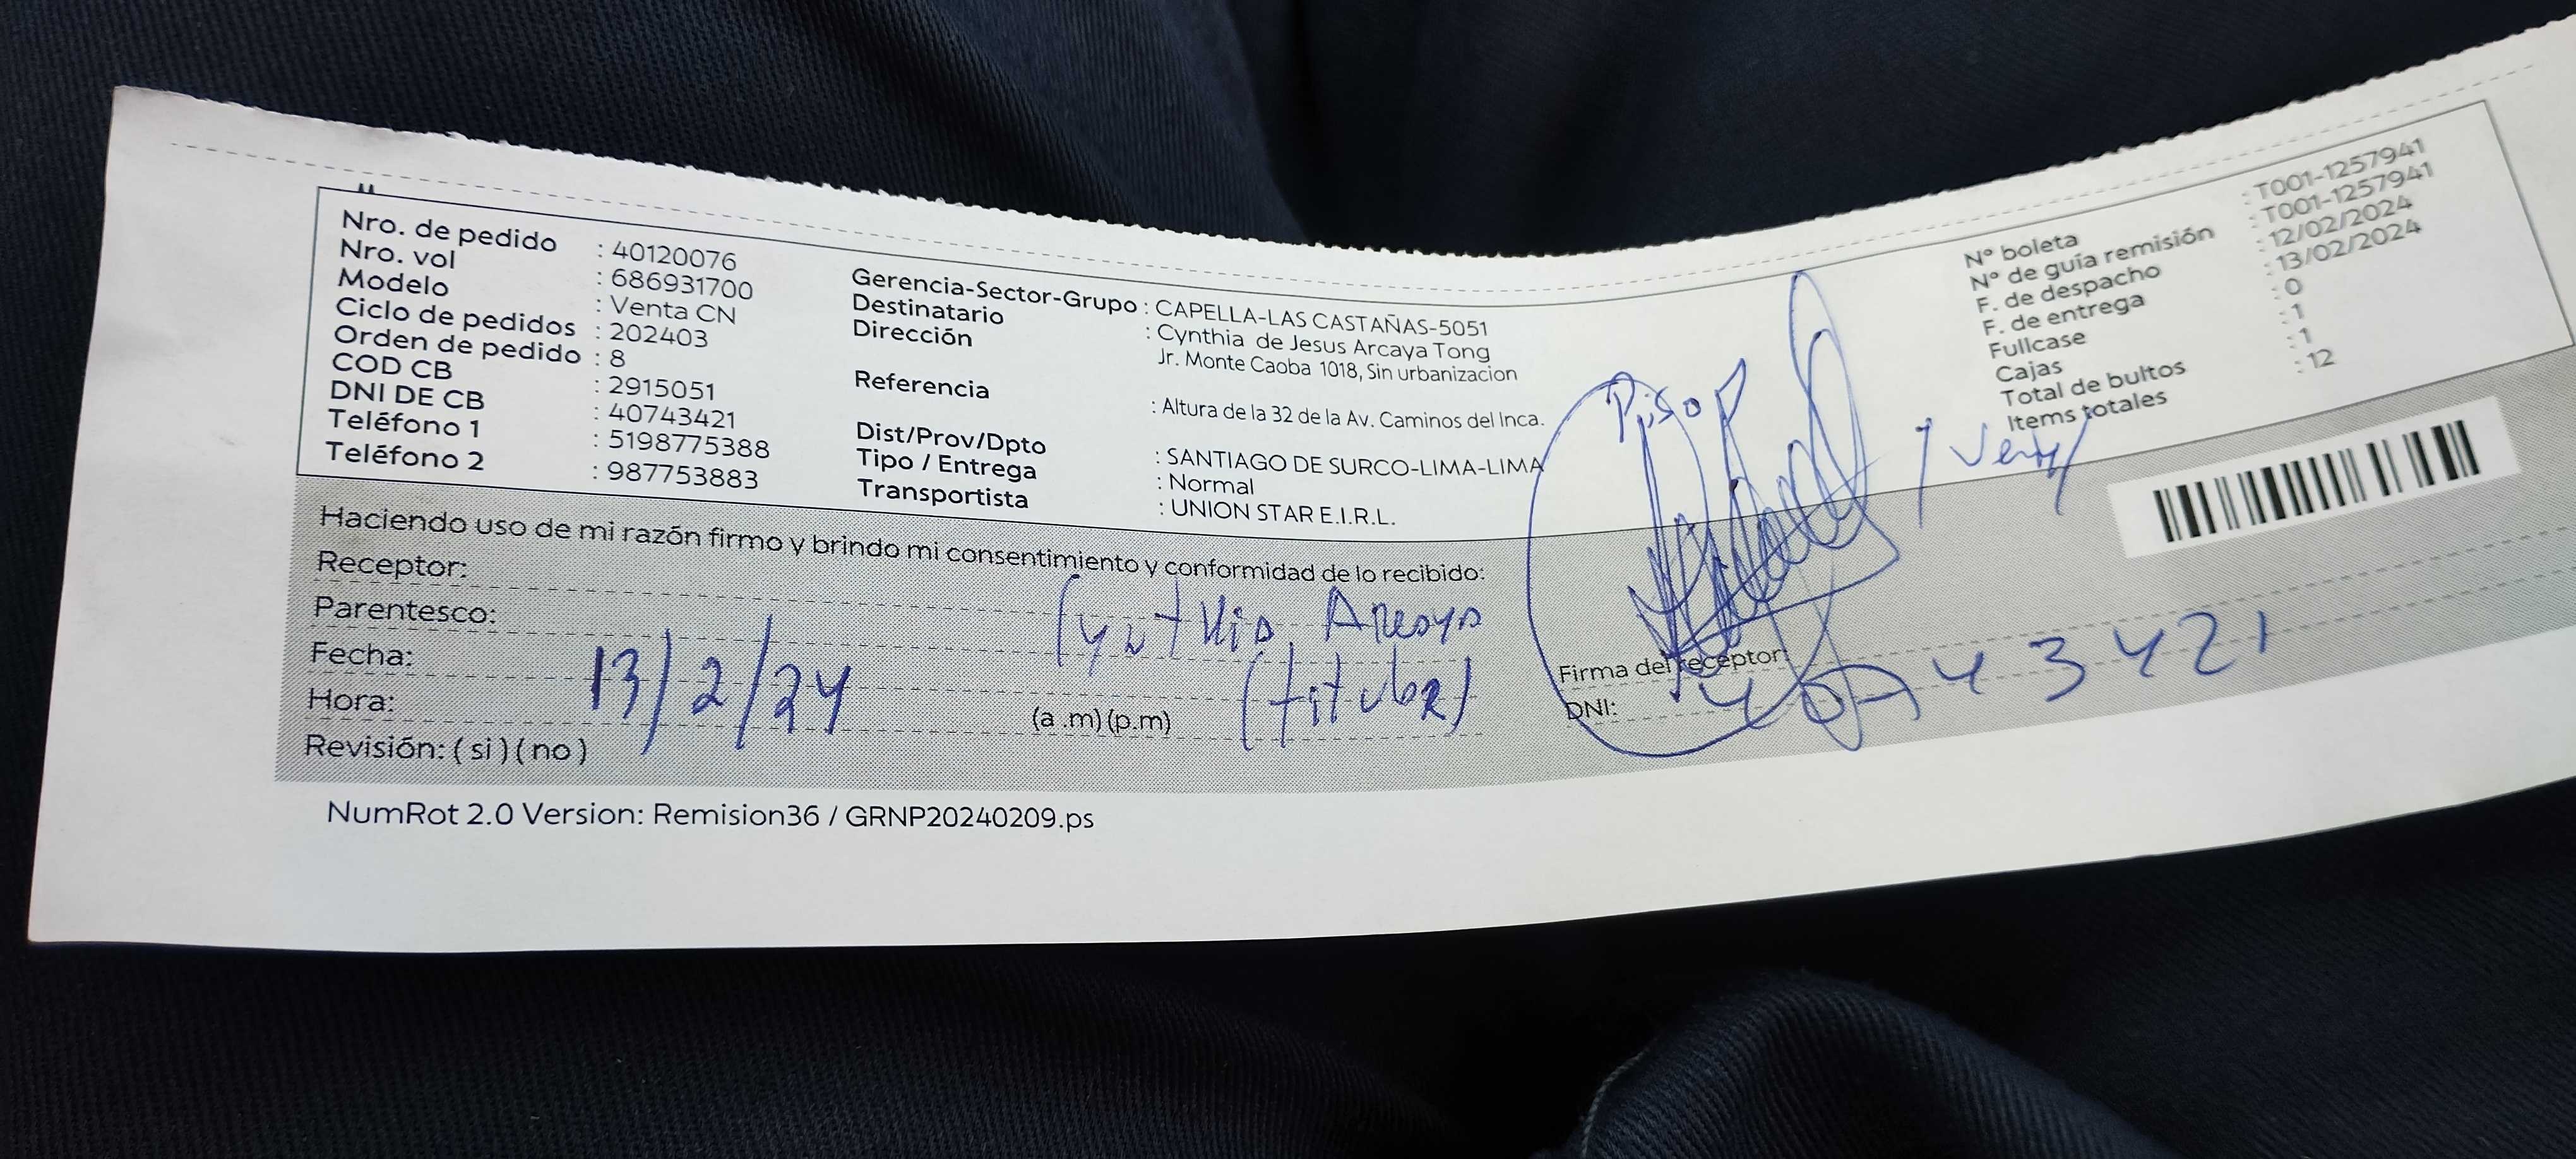 Nro. de pedido : 40120076
Nro. vol : 686931700
Modelo : Venta CN
Ciclo de pedidos : 202403
Orden de pedido : 8
COD CB : 2915051
DNI DE CB : 40743421
Teléfono 1 : 5198775388
Teléfono 2 : 987753883
Gerencia-Sector-Grupo : CAPELLA-LAS CASTAÑAS-5051
Destinatario : Cynthia de Jesus Arcaya Tong
Dirección Jr. Monte Caoba 1018, Sin urbanizacion
Referencia : Altura de la 32 de la Av. Caminos del Inca.
Dist/Prov/Dpto : SANTIAGO DE SURCO-LIMA-LIMA
Tipo / Entrega : Normal
Transportista : UNION STAR E.I.R.L.
N° boleta : T001-1257941
N° de guía remisión : T001-1257941
F. de despacho : 12/02/2024
F. de entrega : 13/02/2024
Fullcase : 0
Cajas : 1
Total de bultos : 1
Items totales : 12
Haciendo uso de mi razón firmo y brindo mi consentimiento y conformidad de lo recibido:
Receptor: Cynthia
Parentesco: (titular)
Fecha: 13/2/24
Hora: (a .m)(p.m)
Revisión: ( si ) ( no )
Firma del receptor:
DNI: 40743421
NumRot 2.0 Version: Remision36 / GRNP20240209.ps